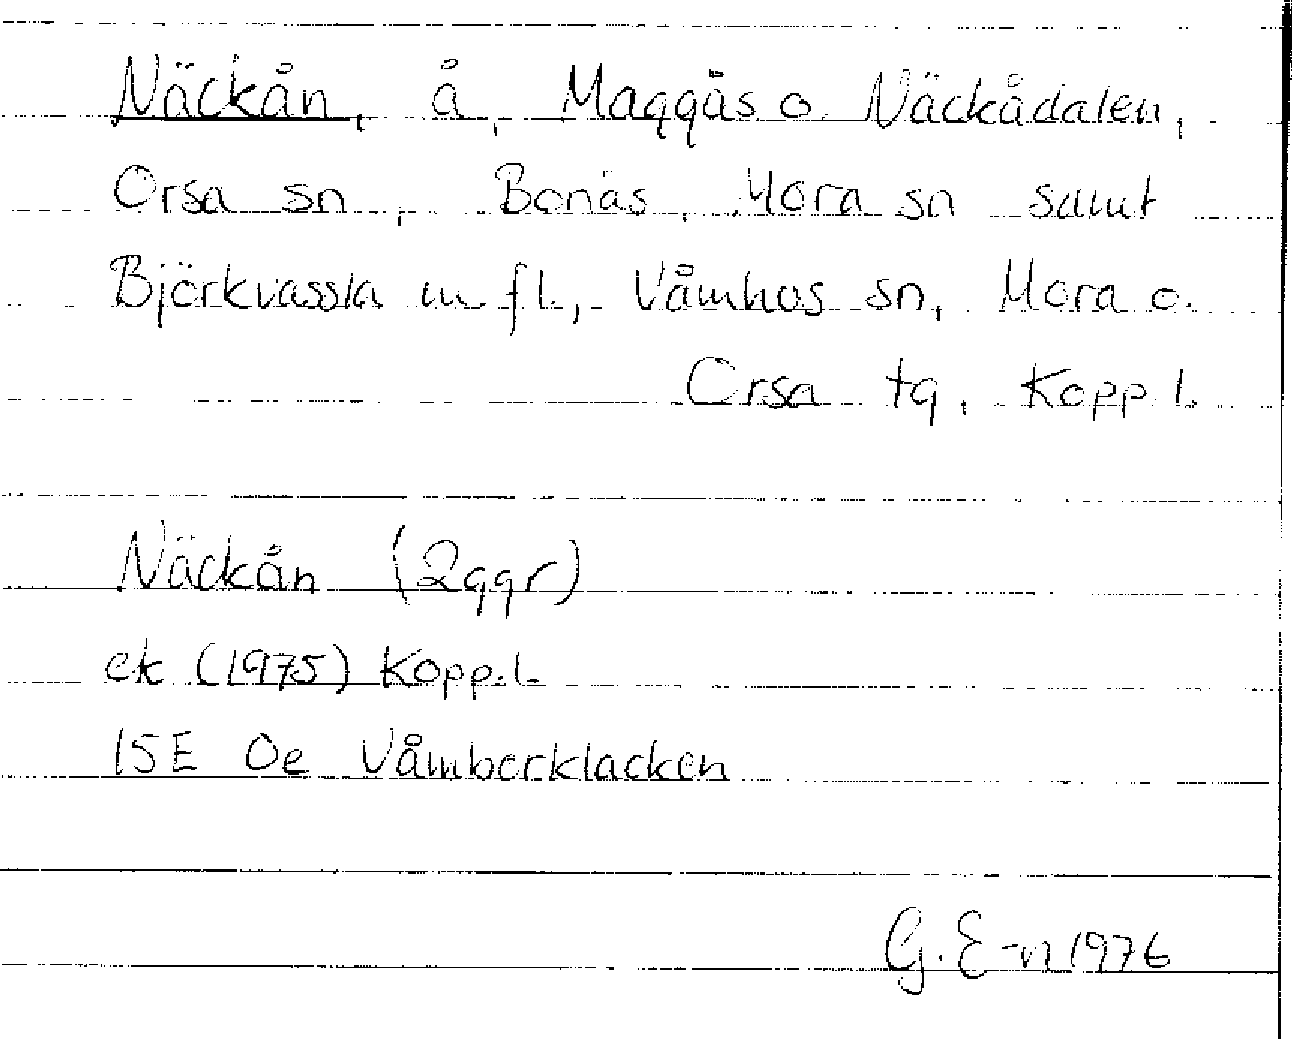 Näckån, å, Maggås o. Näckådalen,
Orsa sn, Bonäs, Mora sn samt
Björkvassla m fl, Våmhus sn, Mora o.
Orsa tg, Kopp l.
Näckån (2ggr)
ek (1975) Kopp.l.
15E 0e Våmberklacken
G. E-n 1976